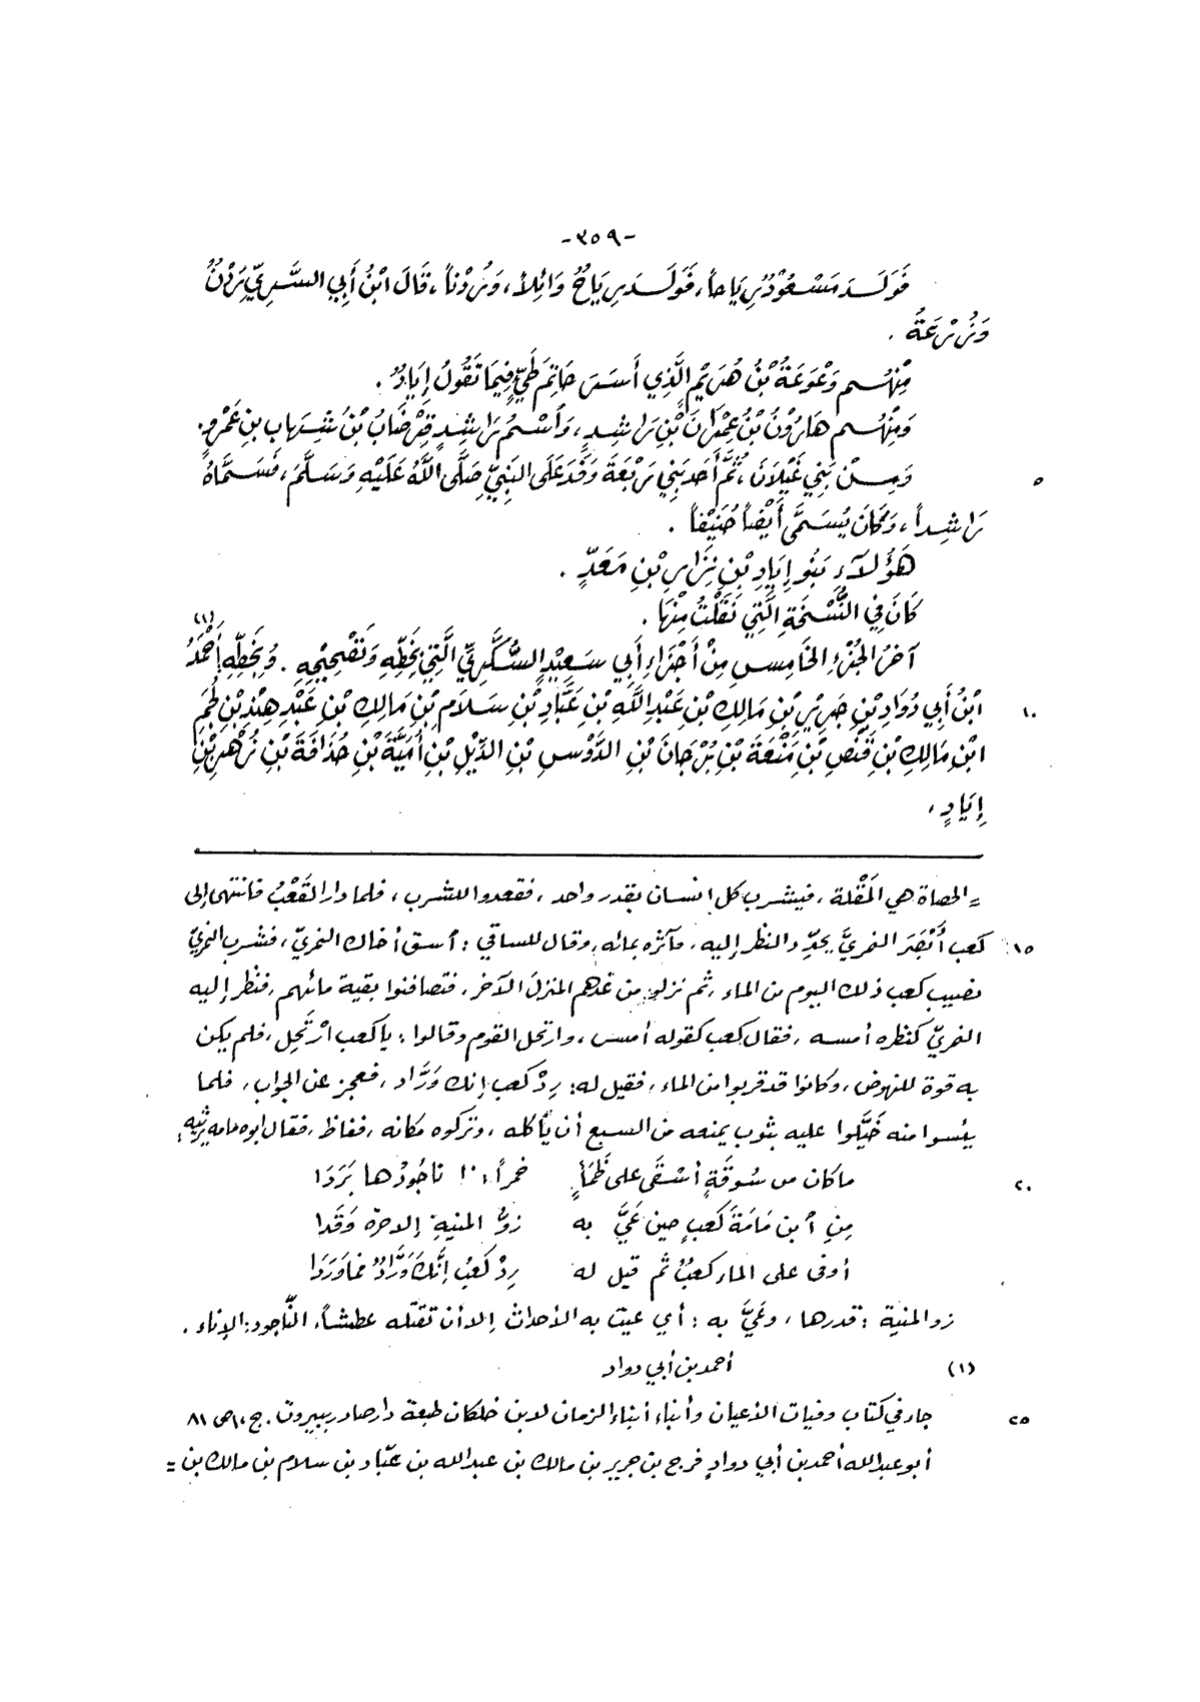 -٣٥٩-
فَوَلَدَ مَسْعُوْدٌ رِيَاحاً، فَوَلَدَ رِيَاحٌ وَائِلاً، وَزُرْناً، قَالَ ابْنُ أَبِي السَّرِيِّ زُرْنٌ
وَزُرْعَةُ .
مِنْهُم وَعْوَعَةُ بْنُ هُرَيْمٍ الَّذِي أَسَرَ حَاتِمَ طَيٍّ فِيْمَا تَقُولُ إِيَادٌ .
وَمِنْهُم هَارُوْنُ بْنُ عِمْرَانَ بْنِ رَاشِدٍ، وَاسْمُ رَاشِدٍ قِرْضَابُ بْنُ شِهَابِ بنِ عَمْرٍو.
٥ وَمِنْ بَنِي غَيْلَانَ، ثُمَّ أَحَدِ بَنِي رَبْعَةَ وَفَدَ عَلَى النَبِيِّ صَلَّى اللَّهُ عَلَيْهِ وَسَلَّمَ، فَسَمَّاهُ
رَاشِداً، وَكَانَ يُسَمَّى أَيْضاً حُنَيْفاً .
هَؤُلَآءِ بَنُو إِيَادِ بْنِ نِزَارِ بْنِ مَعَدٍّ .
كَانَ فِي النُّسْخَةِ الَّتِي نَقَلْتُ مِنْهَا .
آخرُ الجُزْءِ الخَامِسِ مِنْ أَجْزَاءِ أَبِي سَعِيْدٍ السُّكَّرِيِّ الَّتِي بِخَطِّهِ وَتَصْحِيْحِهِ . وَبِخَطِّهِ أَحْمَدُ (١)
١٠ ابْنُ أَبِي دُوَادِ بْنِ جَرِيْرِ بْنِ مَالِكِ بْنِ عَبْدِ اللَّهِ بْنِ عَبَّادِ بْنِ سَلَامِ بْنِ مَالِكِ بْنِ عَبْدِ هِنْدِ بْنِ لَخْمِ
ابْنِ مَالِكِ بْنِ قَنَصِ بْنِ مَنْعَةَ بْنِ بُرْجَانَ بْنِ الدَّوْسِ بْنِ الدِّيْلِ بْنِ أُمَيَّةَ بْنِ حُذَافَةَ بْنِ زُهْرِ بْنِ
إِيَادٍ،
= الحصاة هي المَقْلة، فيشرب كل انسان بقدر واحد، فقعدوا للشرب، فلما دار القَعْبُ فانتهى إلى
١٥ كعب أَبْصَرَ النمريَّ يحدِّد النظر إليه، فآثره بمائه، وقال للساقي : أسق أخاك النمريّ، فشرب النمريّ
نصيب كعب ذلك اليوم من الماء، ثم نزلوا من غدهم المنزلَ الآخر، فتصافنوا بقية مائهم، فنظر إليه
النمريّ كنظره أمسه، فقال كعب كقوله أمس، وارتحل القوم وقالوا : يا كعب ارْتَحِل، فلم يكن
به قوة للنهوض، وكانوا قد قربوا من الماء، فقيل له: رِدْ كعب إنك وَرَّاد، فعجز عن الجواب، فلما
يئسوا منه خَيَّلوا عليه بثوب يمنعه من السبع أن يأكله، وتركوه مكانه، ففاظ، فقال أبوه مامه يرثيه:
٢٠ ماكان من سُوقَةٍ أسْقَى على ظَمَأٍ خمراً بماءٍ نَاجُودُها بَرَدَا
مِنِ ابن مَامَةَ كَعبٍ حين عَيَّ به زوُّ المنيةِ إلا حرّة وَقَدا
أوفى على الماء كعبٌ ثم قيل له رِدْ كَعبُ إِنَّكَ وَرَّادٌ فما وَرَدَا
زو المنية : قدرها، وعَيَّ به : أي عيت به الأحداث إلا أن تقتله عطشاً، النَّاجود: الإناء .
(١) أحمد بن أبي دواد
٢٥ جاء في كتاب وفيات الأعيان وأنباء أبناء الزمان لابن خلكان طبعة دار صادر ببيروت . ج: ١ ص ٨١
أبو عبد الله أحمد بن أبي دوادٍ فرج بن جرير بن مالك بن عبد الله بن عبّاد بن سلام بن مالك بن =